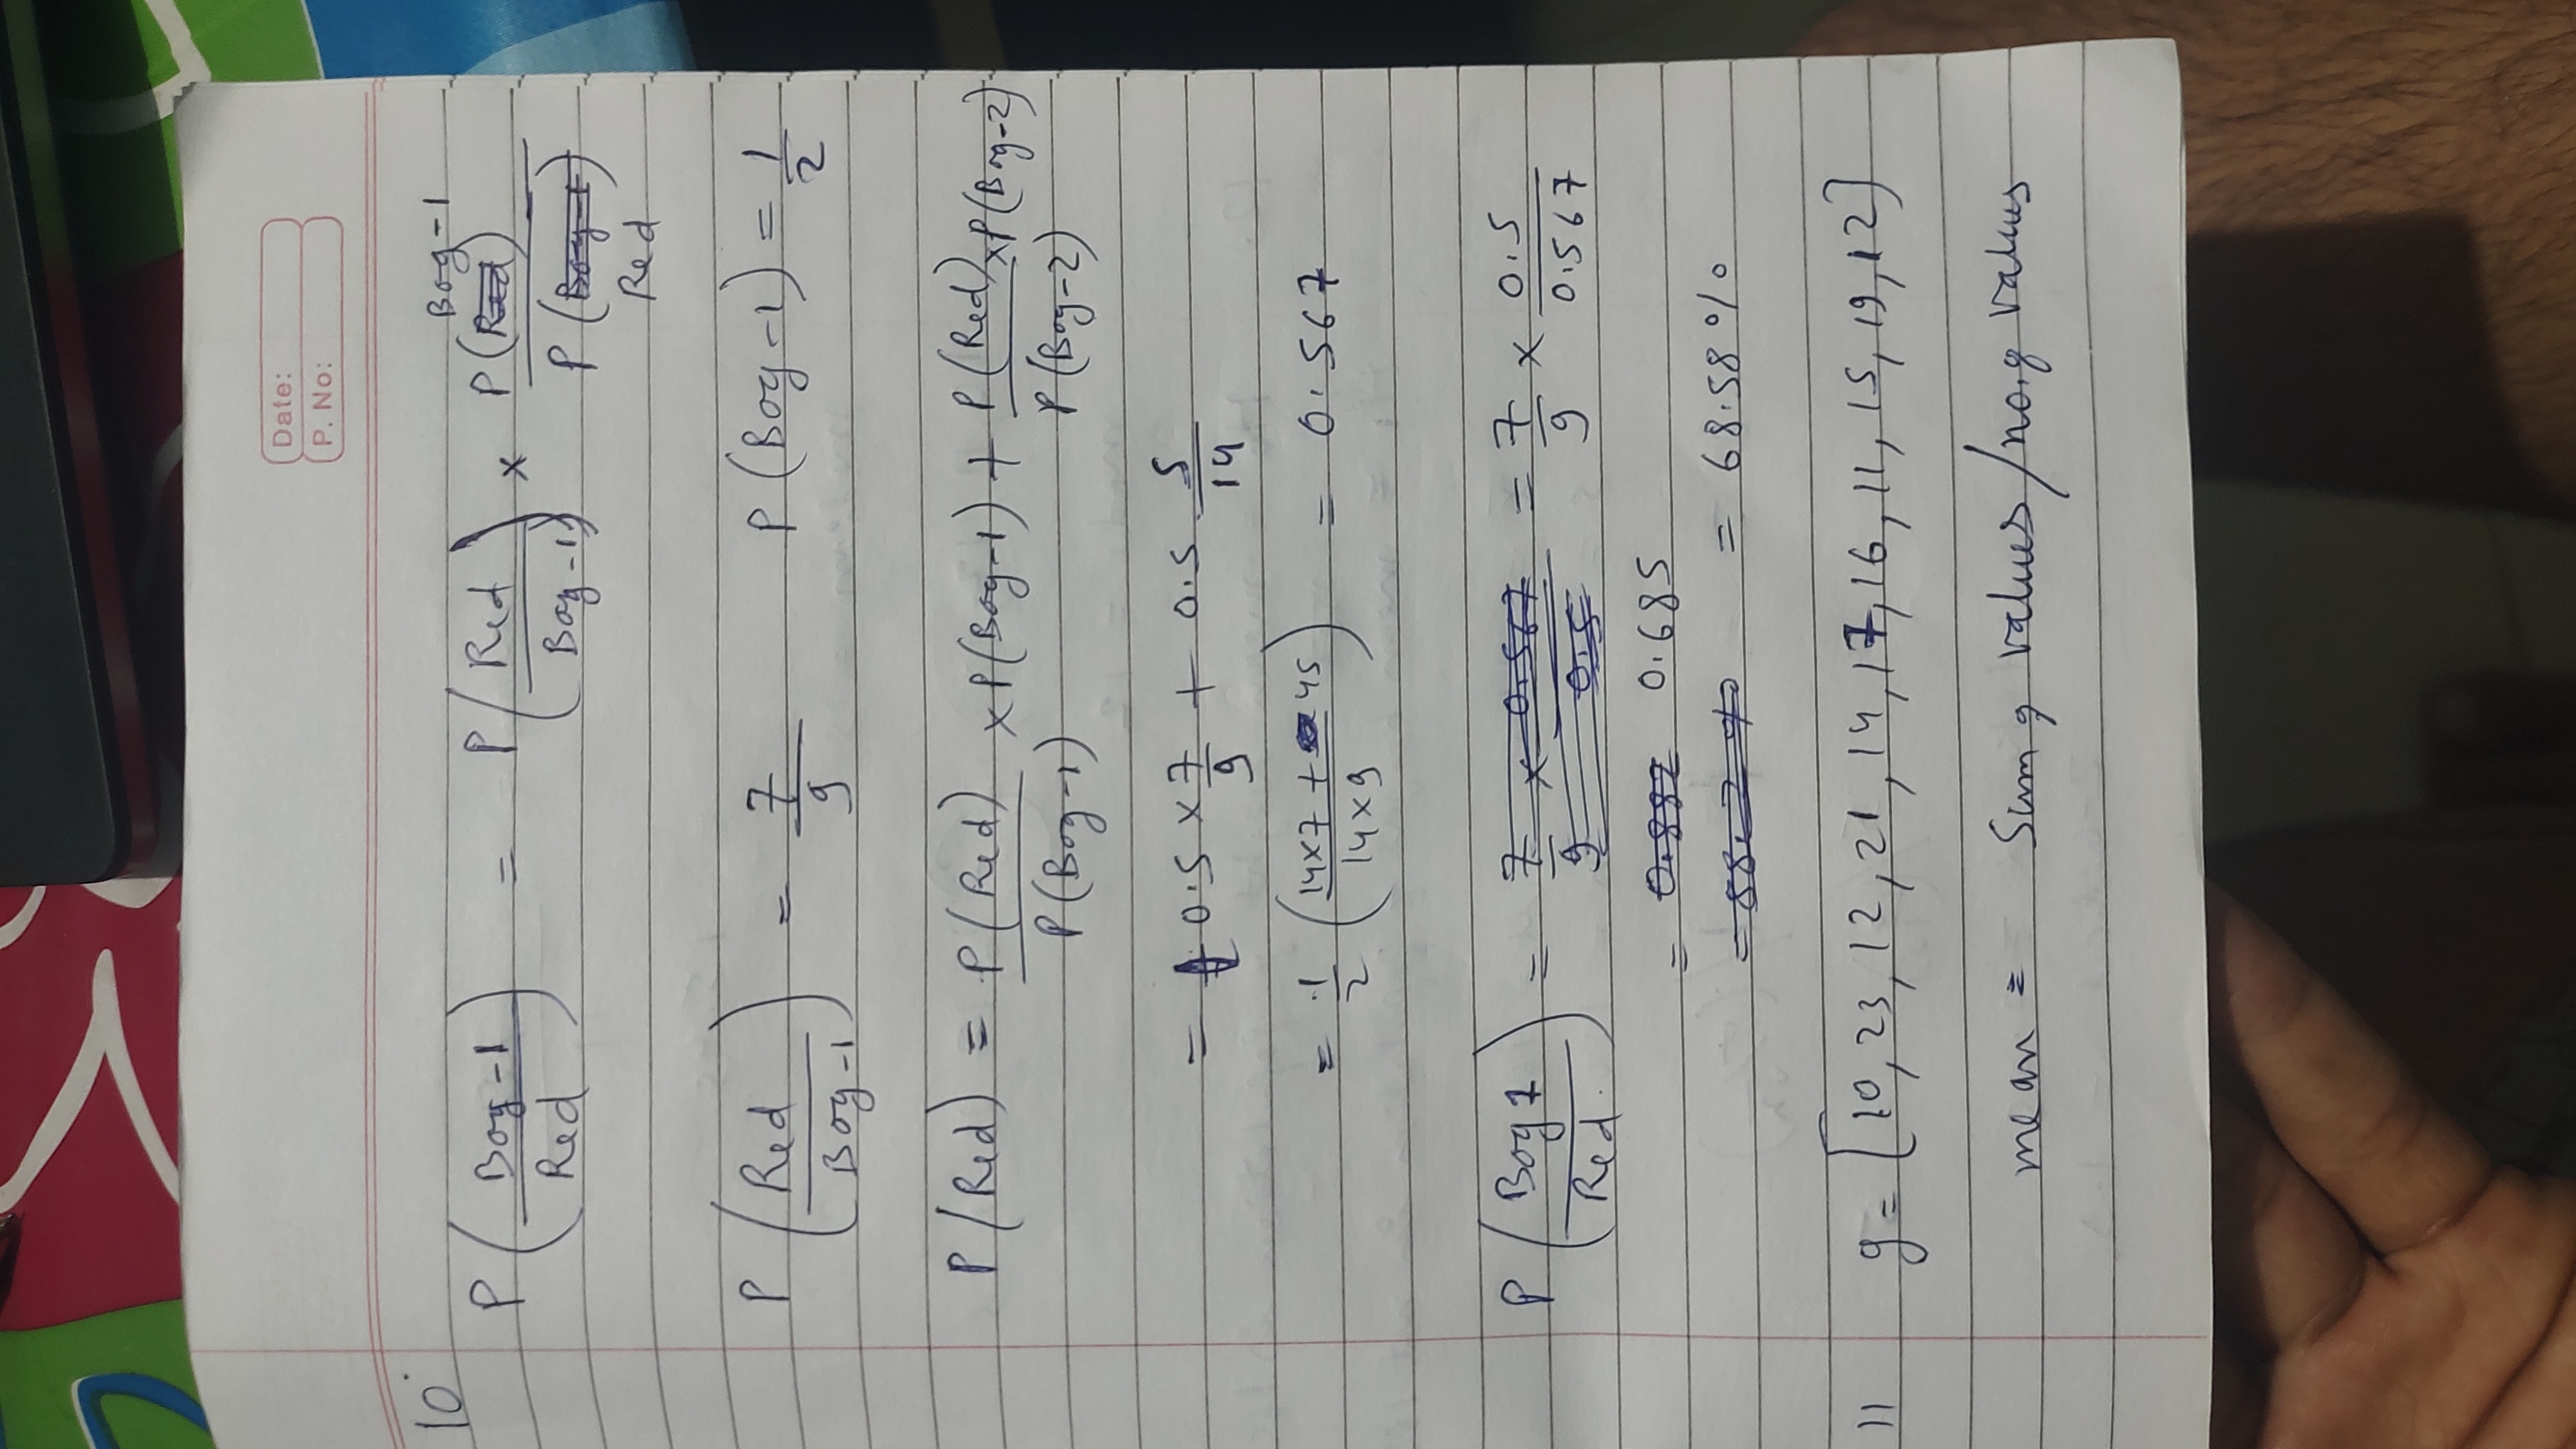 Date:
P. No:
10.
P (Bog-1 / Red) = P (Red / Bog-1) × P(Bog-1) / P(Red)
P (Red / Bog-1) = 7/9 P (Bog-1) = 1/2
P (Red) = P (Red) / P (Bog-1) × P(Bog-1) + P (Red) / P (Bog-2) × P(Bog-2)
= 0.5 × 7/9 + 0.5 5/14
= 1/2 (14×7 + 45 / 14×9) = 0.567
P (Bog 1 / Red.) = 7/9 × 0.567/0.5 = 7/9 × 0.5/0.567
= 0.882 0.685
= 88.2 % = 68.58 %
11 g = [10, 23, 12, 21, 14, 17, 16, 11, 15, 19, 12]
mean = Sum of values / no. of values